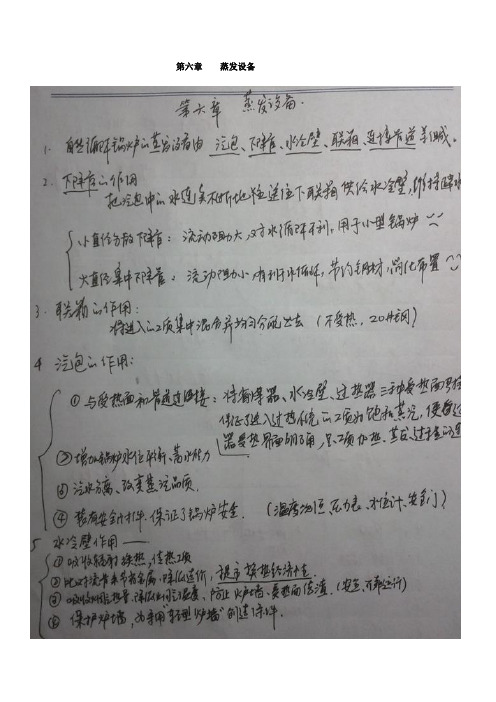 第六章 蒸发设备
第六章 蒸发设备.
1. 自然循环锅炉的蒸发设备由 汽包、下降管、水冷壁、联箱、连接管道等组成。
2. 下降管的作用
把汽包中的水连续不断地送往下联箱供给水冷壁,维持
小直径分散下降管: 流动阻力大,对水循环不利,用于小型锅炉
大直径集中下降管: 流动阻力小,有利于水循环,节约钢材,简化布置
3. 联箱的作用:
将进入的工质集中混合并均匀分配出去 (不受热, 20#钢)
4 汽包的作用:
① 与受热面和管道连接: 将省煤器、水冷壁、过热器三种受热面
保证了进入过热系统的工质为饱和蒸汽,使
器受热界面明确,是工质加热、蒸发、过热
② 增加锅炉水位平衡、蓄水能力
③ 汽水分离、改变蒸汽品质.
④ 装有安全附件,保证了锅炉安全. (压力表、水位计、安全门)
5 水冷壁作用 ——
① 吸收辐射换热,
② 节省金属,降低造价,
③ 防止炉墙、受热面结渣. (安全、可靠运行)
⑥ 保护炉墙,为采用"轻型炉墙"创造条件.